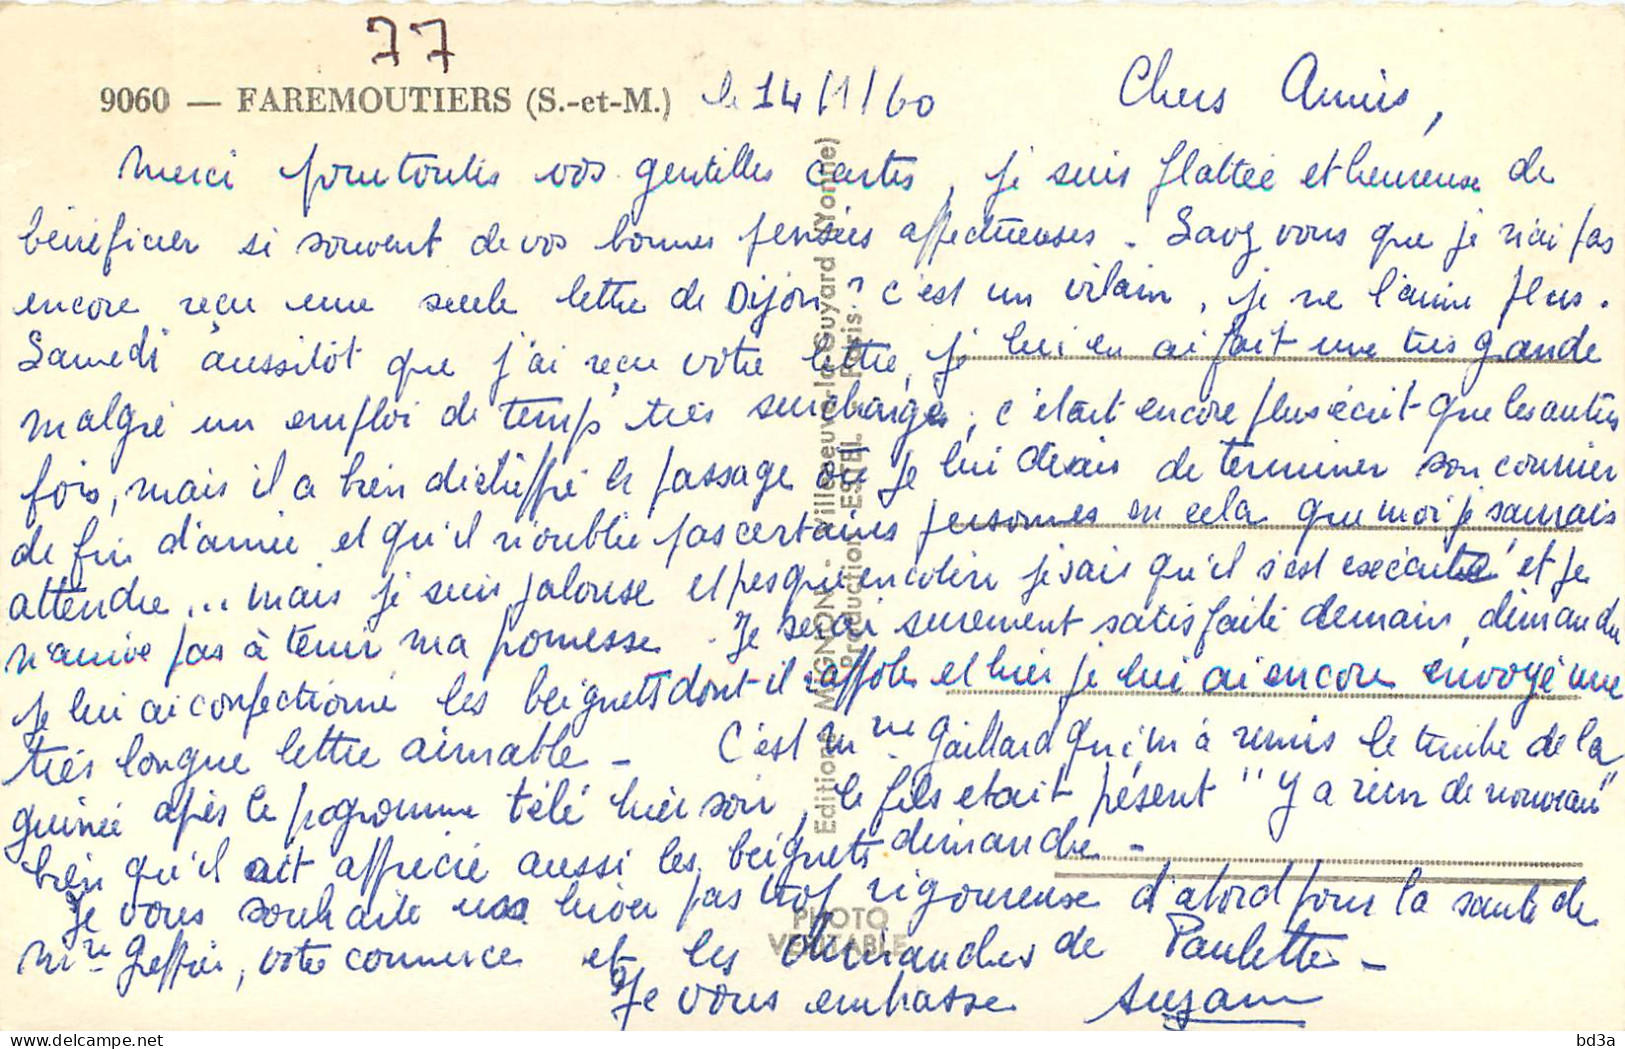 77
9060 — FAREMOUTIERS (S.-et-M.) le 14/1/60 Chers Amis,
Merci pour toutes vos gentilles cartes, je suis flattée et heureuse de
bénéficier si souvent de vos bonnes pensées affectueuses. Savez vous que je n'ai pas
encore reçu une seule lettre de Dijon? c'est un vilain, je ne l'aime plus.
Samedi aussitôt que j'ai reçu votre lettre, je lui en ai fait une très grande
malgré un emploi de temps très surchargé, c'était encore plus écrit que les autres
fois, mais il a bien déchiffré le passage où je lui disais de terminer son courrier
de fin d'année et qu'il n'oublie pas certaines personnes en cela que moi je saurais
attendre... mais je suis jalouse et presque en colère je sais qu'il s'est exécuté et je
n'arrive pas à tenir ma promesse. Je serai surement satisfaite demain, dimanche
je lui ai confectionné les beignets dont il raffole et hier je lui ai encore envoyé une
très longue lettre aimable – C'est Mme Gaillard qui m'a remis le timbre de la
guinée après le programme télé hier soir, le fils etait présent "Y a rien de nouveau"
bien qu'il ait apprécié aussi les beignets dimanche –
Je vous souhaite un hiver pas trop rigoureuse d'abord pour la santé de
Mme Greffier, votre commerce et les dimanches de Paulette –
Je vous embrasse Suzanne
Editions MIGNON - Villeneuve-la-Guyard (Yonne)
Production ESTEL - Paris.
PHOTO
VÉRITABLE
bd3a